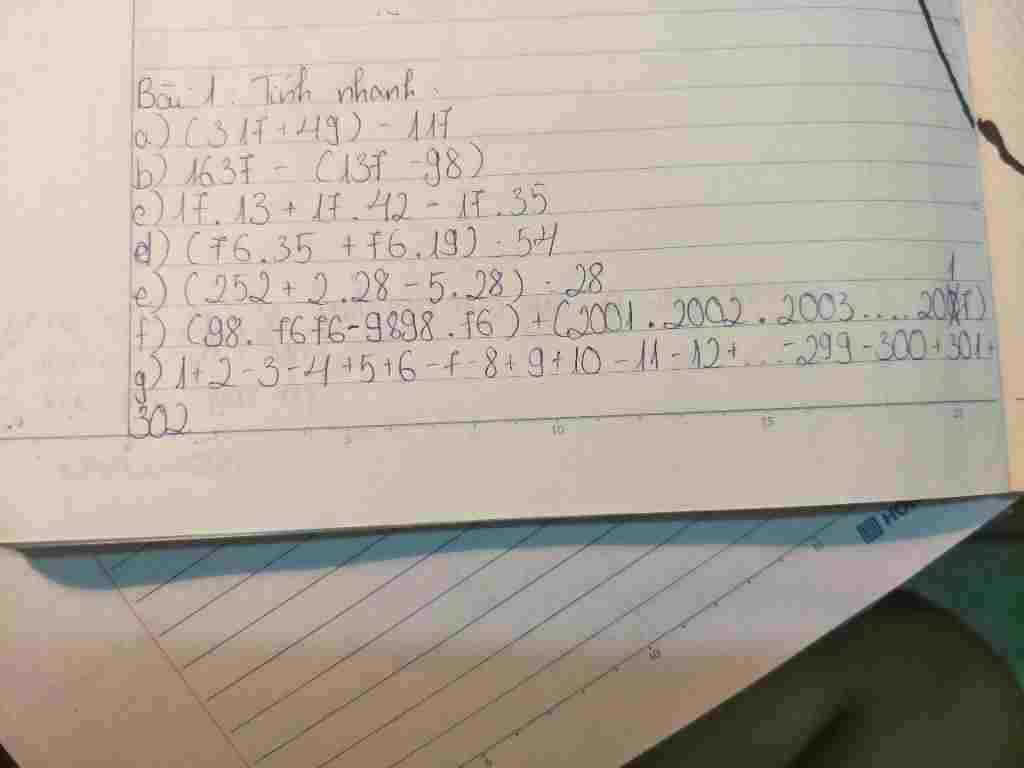 Bài 1. Tính nhanh:
a) (317 + 49) - 117
b) 1637 - (137 - 98)
c) 17.13 + 17.42 - 17.35
d) (76.35 + 76.19) : 54
e) (252 + 2.28 - 5.28) : 28
f) (98. 7676 - 9898.76) + (2001.2002.2003....2017)
g) 1+2-3-4+5+6-7-8+9+10-11-12+...-299-300+301+
302
5 10 15 21
10